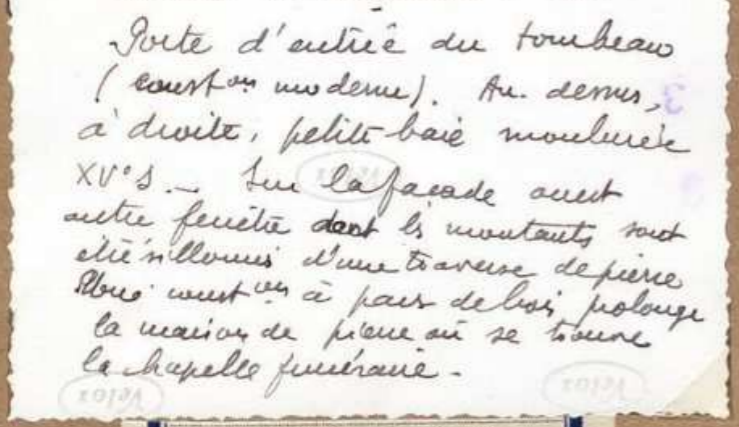 Porte d'entrée du tombeau
(const^on moderne). Au. dessus,
à droite, petite baie moulurée
XV°S. _ Sur la façade ouest
autre fenêtre dont ls montants sont
d'une traverse de pierre
const^on à pans de bois prolonge
la maison de pierre où se trouve
la chapelle funéraire.
Velox
Velox
Velox